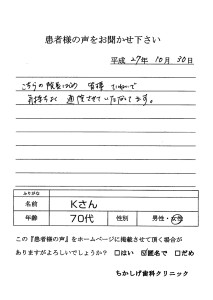 患者様の声をお聞かせ下さい
平成 27年 10月 30日
こちらの院長はじめ 皆様 ていねいで
気持ちよく 通院させていただいてます。
ふりがな
名前 Kさん
年齢 70代 性別 男性・女性
この『患者様の声』をホームページに掲載させて頂く場合が
ありますがよろしいでしょうか? □はい ☑匿名で □だめ
ちかしげ歯科クリニック